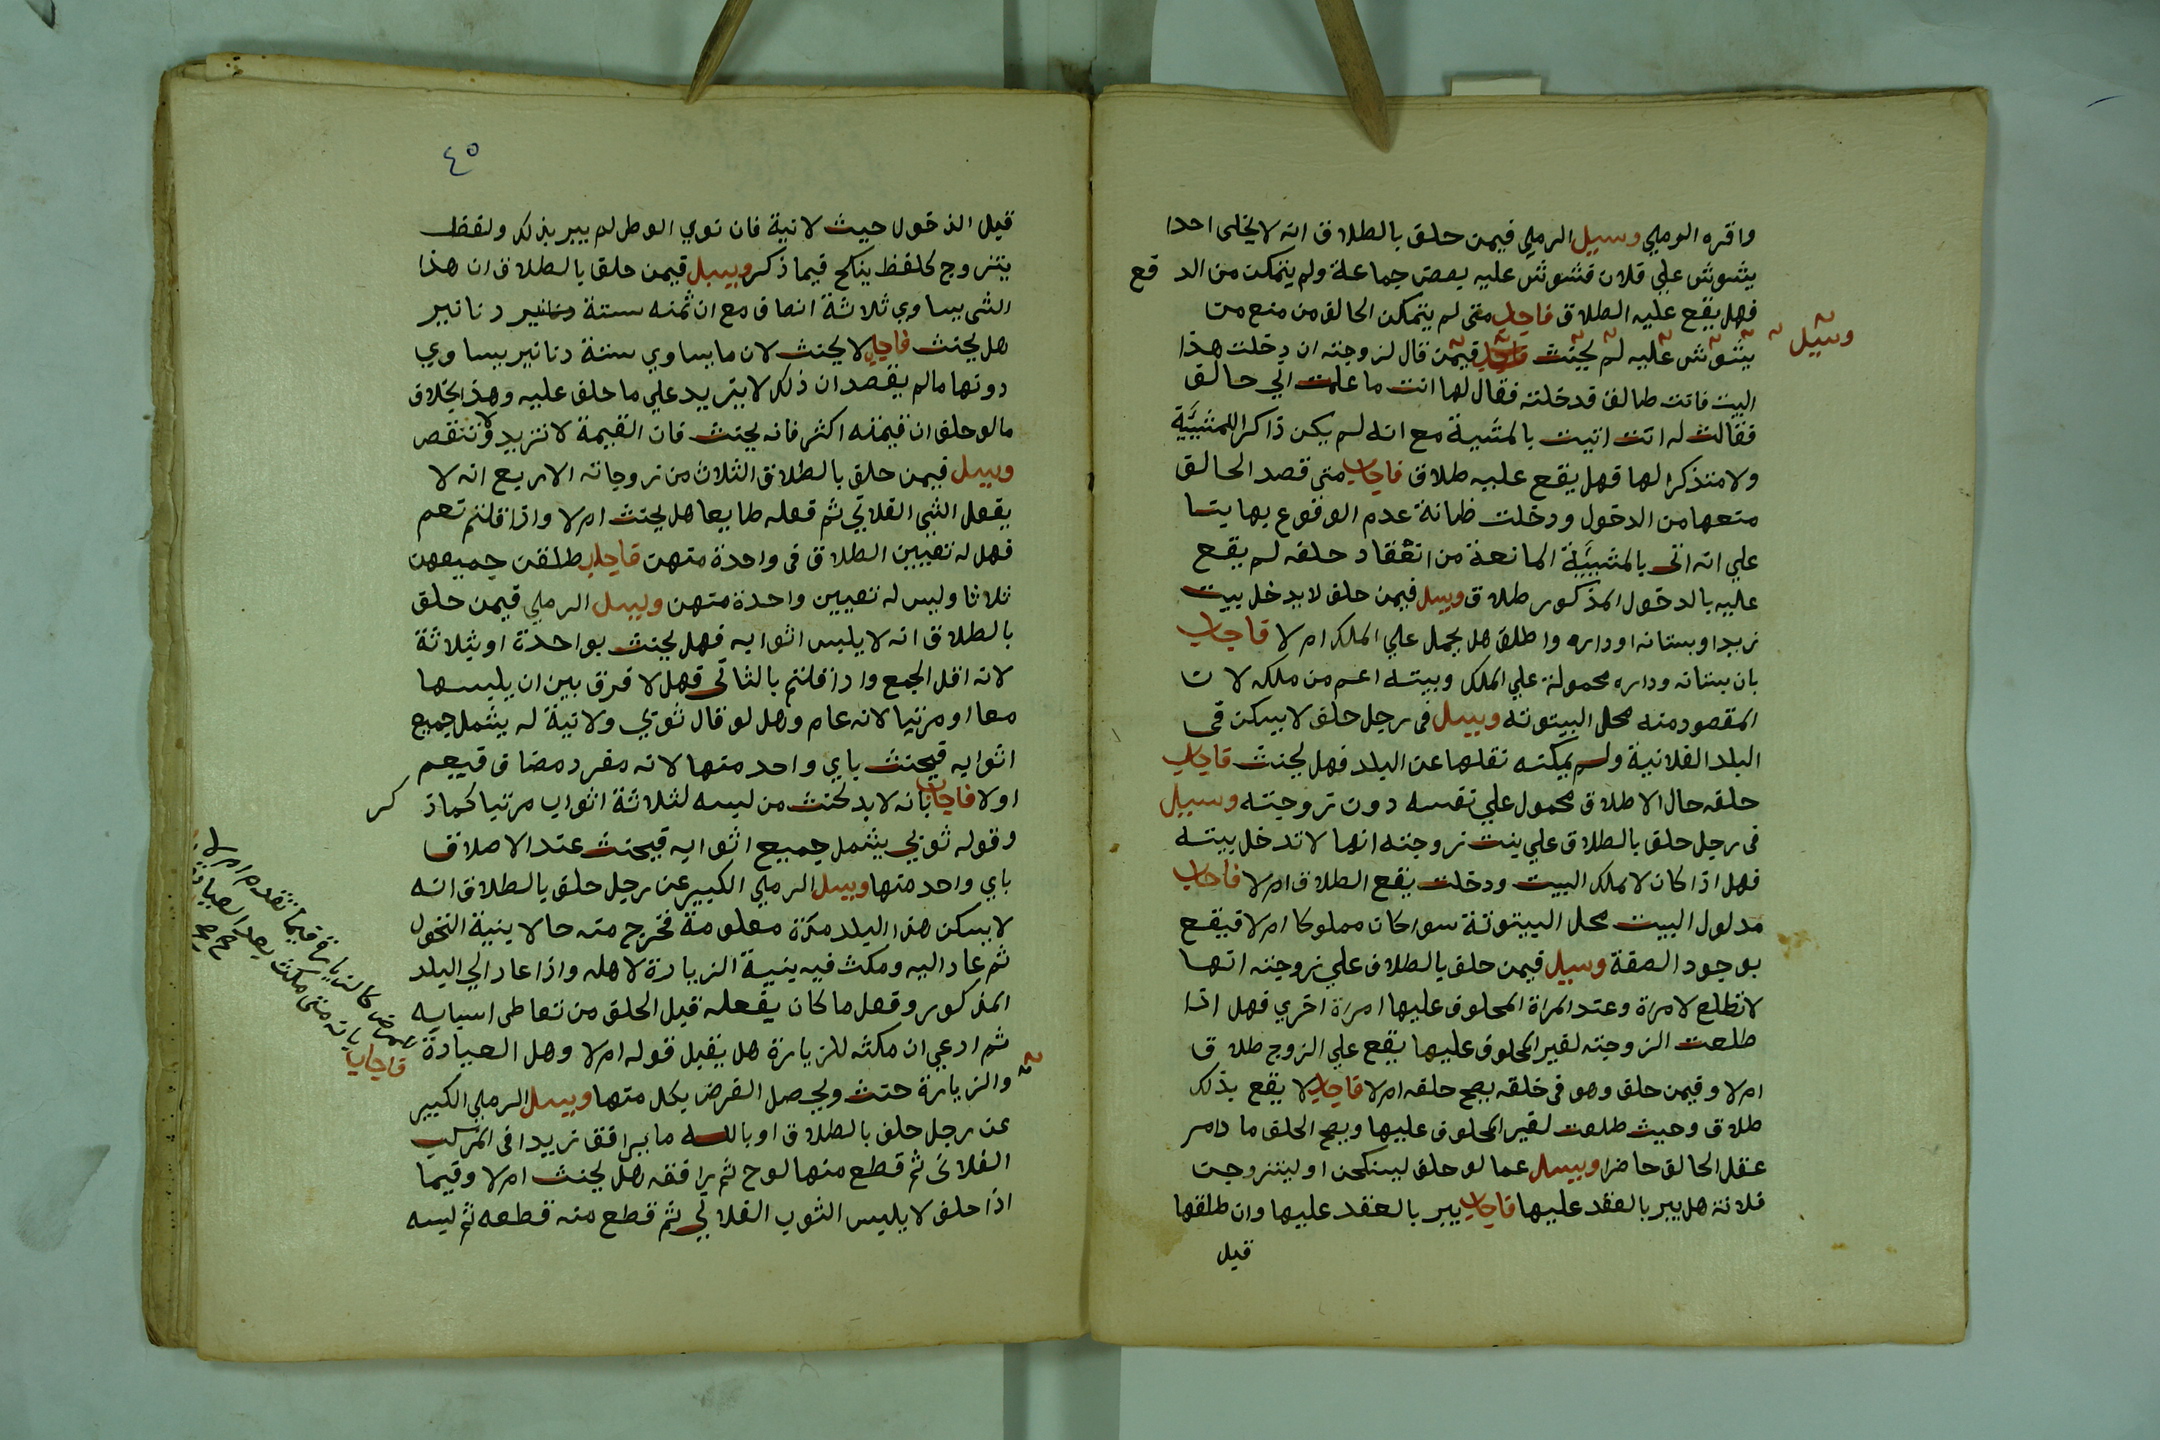 واقره الرملي وسيل الرملي فيمن حلف بالطلاق انه لا يخلي احدا
يشوش علي فلان فشوش عليه بعض جماعة ولم يتمكن من الد فع
فهل يقع عليه الطلاق فاجاب متي لم يتمكن الحالف من منع من
يشوش عليه لم يحنث وسيل فيمن قال لزوجته ان دخلت هذا
البيت فانت طالق قد خلته فقال لها انت ما علمت اني حالف
فقالت له انت اتيت بالمشية مع انه لم يكن ذاكرا للمشيية
ولا متذكرا لها فهل يقع عليه طلاق فاجاب متي قصد الحالف
منعها من الدخول ودخلت ظانة عدم الوقوع بها بنا
علي انه اتى بالمشيية المانعة من انعقاد حلفه لم يقع
عليه بالدخول المذكور طلاق وسيل فيمن حلف لا يدخل بيت
زيد او بستانه او داره واطلق هل يحمل علي الملك ام لا فاجاب
بان بستانه وداره محمولة علي الملك وبيته اعم من ملكه لان
المقصود منه محل البيتوته وسيل في رجل حلف لا يسكن في
البلد الفلانية ولم يمكنه نقلها عن البلد فهل يحنث فاجاب
حلفه حال الاطلاق محمول علي نفسه دون زوجته وسيل
في رجل حلف بالطلاق علي بنت زوجته انها لا تدخل بيته
فهل اذا كان لا يملك البيت ودخلت يقع الطلاق ام لا فاجاب
مدلول البيت محل البيتوتة سوا كان مملوكا ام لا فيقع
بوجود الصفة وسيل فيمن حلف بالطلاق علي زوجته انها
لا تطلع لامراة وعند المراة المحلوف عليها امراة اخري فهل اذا
طلعت الزوجته لغير المحلوف عليها يقع علي الزوج طلاق
ام لا وفيمن حلف وهو في خلقه يصح حلفه ام لا فاجاب لا يقع بذلك
طلاق وحيث طلعت لغير المحلوف عليها ويصح الحلف ما دام
عقل الحالف حاضرا وسيل عما لو حلف لينكحن او ليتزوجن
فلانة هل يبر بالعقد عليها فاجاب يبر بالعقد عليها وان طلقها
قبل
٤٥
قبل الدخول حيث لا نية فان نوي الوطي لم يبر بذلك ولفظ
يتزوج كلفظ ينكح فيما ذكر وسيل فيمن حلف بالطلاق ان هذا
الشي يساوي ثلاثة انصاف مع ان ثمنه ستة دنانير
هل يحنث فاجاب لا يحنث لان ما يساوي ستة دنانير يساوي
دونها ما لم يقصد ان ذلك لا يزيد علي ما حلف عليه وهذا بخلاف
ما لو حلف ان قيمته اكثر فانه يحنث فان القيمة لا تزيد ولا تنقص
وسيل فيمن حلف بالطلاق الثلاث من زوجاته الاربع انه لا
يفعل الشي الفلاني ثم فعله طايعا هل يحنث ام لا واذا قلتم نعم
فهل له تعيين الطلاق في واحدة منهن فاجاب طلقن جميعهن
ثلاثا وليس له تعيين واحدة منهن وسيل الرملي فيمن حلف
بالطلاق انه لا يلبس اثوابه فهل يحنث بواحدة او بثلاثة
لانه اقل الجمع واذا قلتم بالثاني فهل لا فرق بين ان يلبسها
معا او مرتبا لانه عام وهل لو قال ثوبي ولا نية له يشمل جميع
اثوابه فيحنث باي واحد منها لانه مفرد مضاف فيعم
اولا فاجاب بانه لا بد لحنث من لبسه لثلاثة اثواب مرتبا كما ذ كر
وقوله ثوبي يشمل جميع اثوابه فيحنث عند الاطلاق
باي واحد منها وسيل الرملي الكبير عن رجل حلف بالطلاق انه
لا يسكن هذا البلد مدة معلومة فخرج منه حالا بنية التحول
ثم عاد اليه ومكث فيه بنية الزيارة لاهله واذا عاد الي البلد
المذكور وفعل ما كان يفعله قبل الحلف من تعاطي اسبابه
ثم ادعي ان مكثه للزيارة هل يقبل قوله ام لا وهل العيادة
كالزيارة فيما تقدم ام لا
فاجاب بانه متي مكث بعد العيادة
والزيارة حنث ويحصل الغرض بكل منها وسيل الرملي الكبير
عن رجل حلف بالطلاق او بالله ما يرافق زيدا في المركب
الفلاني ثم قطع منها لوح ثم يرافقه هل يحنث ام لا وفيما
اذا حلف لا يلبس الثوب الفلاني ثم قطع منه قطعه ثم لبسه